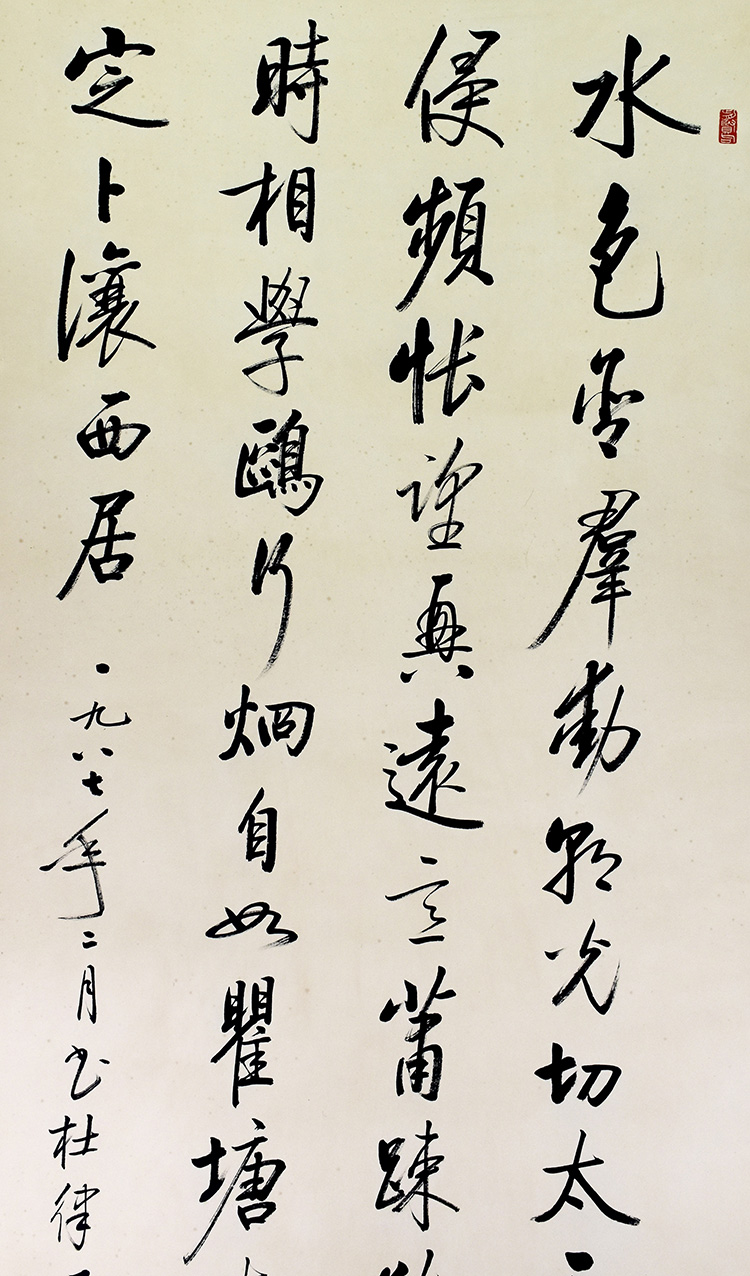 水色含羣動朝光切太
侵頻悵望興遠壹蕭踈
時相學鷗行烱自如瞿塘
定卜瀼西居 一九八七年二月书杜律